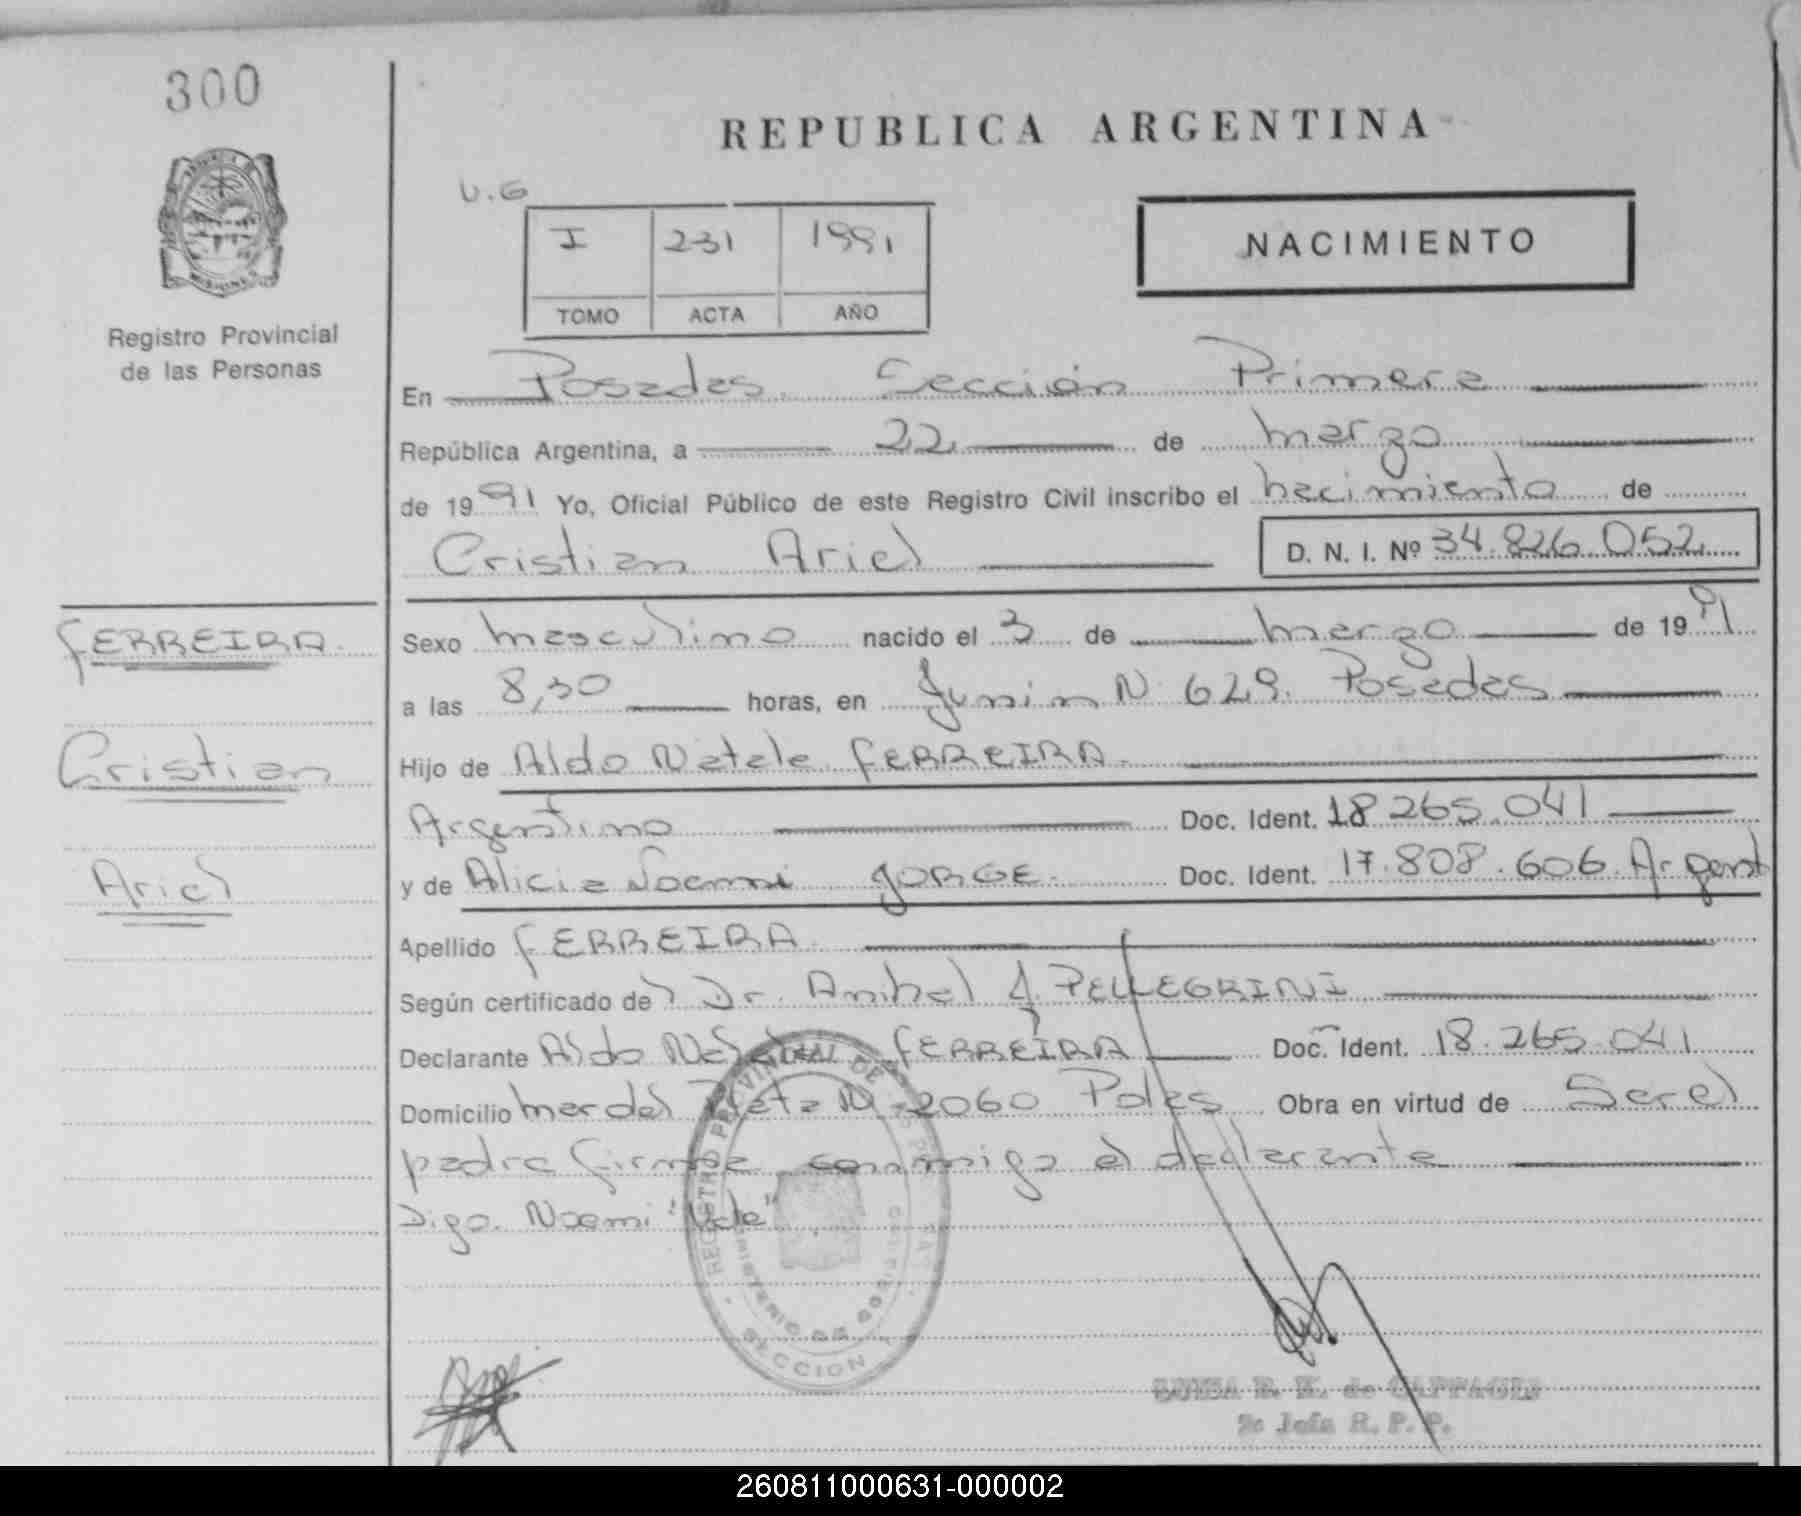 300
REPUBLICA ARGENTINA
U.G
I 231 1991
TOMO ACTA AÑO
NACIMIENTO
Registro Provincial
de las Personas
En Posadas Sección Primera
República Argentina, a 22 de marzo
de 1991 Yo, Oficial Público de este Registro Civil inscribo el nacimiento de
Cristian Ariel D. N. I. Nº 34.826.052
FERREIRA
Cristian
Ariel
Sexo masculino nacido el 3 de marzo de 1991
a las 8,30 horas, en Junin N 629. Posadas
Hijo de Aldo Natale FERREIRA
Argentino Doc. Ident. 18 265.041
y de Alicia Noemi JORGE Doc. Ident. 17.808.606 Argent
Apellido FERREIRA
Según certificado de Dr. Anibal J. PELLEGRINI
Declarante Aldo FERREIRA Doc. Ident. 18.265.041
Domicilio mar del Plata N 2060 Obra en virtud de Ser el
padre firma conmigo el declarante
Digo. Noemi "Vale"
REGISTRO PROVINCIAL DE LAS
MINISTERIO DE GOBIERNO
SECCION 1
LUISA de
R. P. P.
260811000631-000002